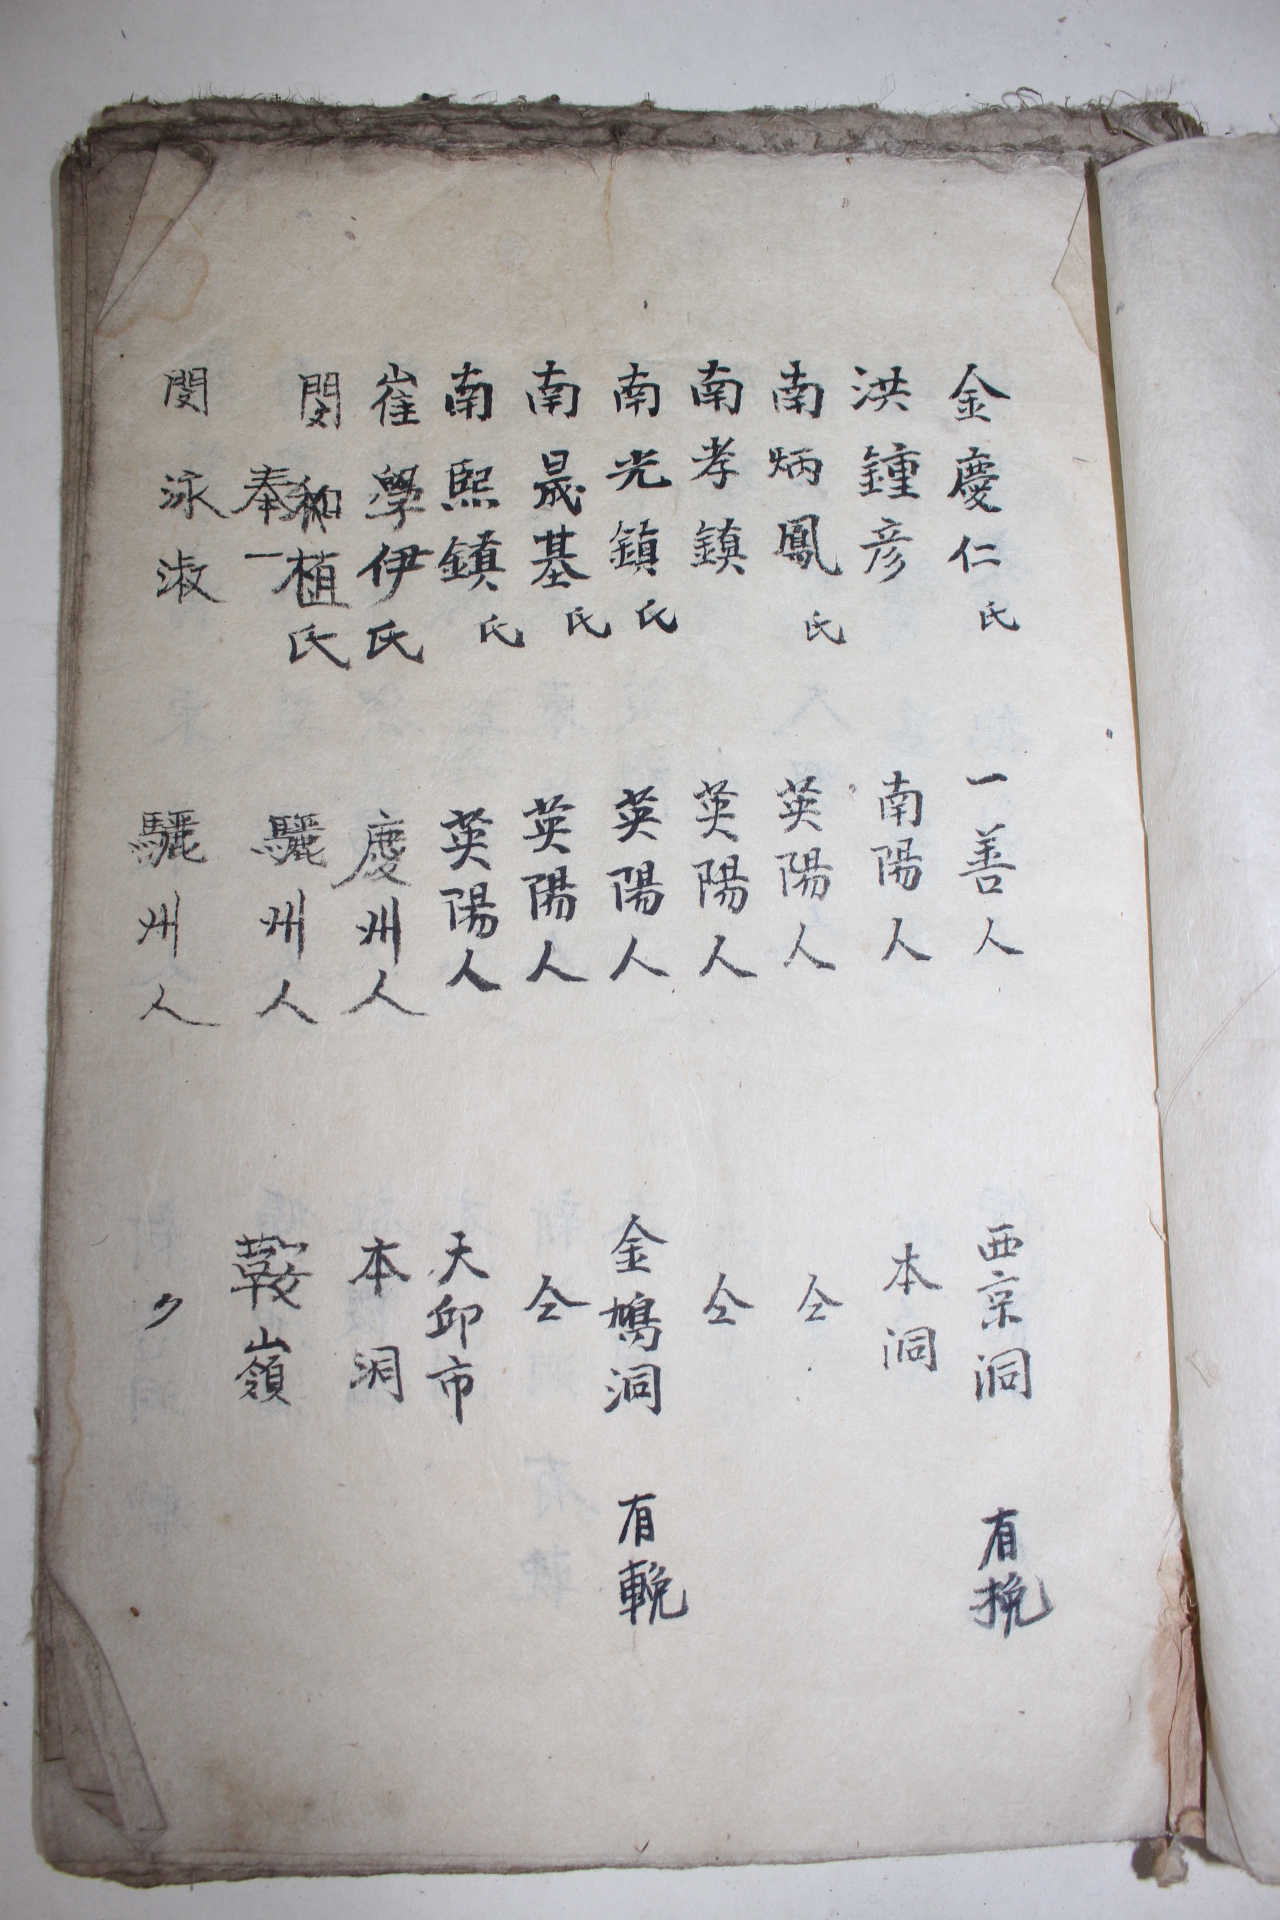 金慶仁氏 一善人 西京洞 有挽
洪鍾彦 南陽人 本洞
南炳鳳氏 英陽人 仝
南孝鎮 英陽人 仝
南光鎮氏 英陽人 金鳩洞 有輓
南晟基氏 英陽人 仝
南熙鎮氏 英陽人 天邱市
崔學伊氏 慶州人 本洞
閔植氏 奉一 驪州人 鞍嶺
閔泳淑 驪州人 〃